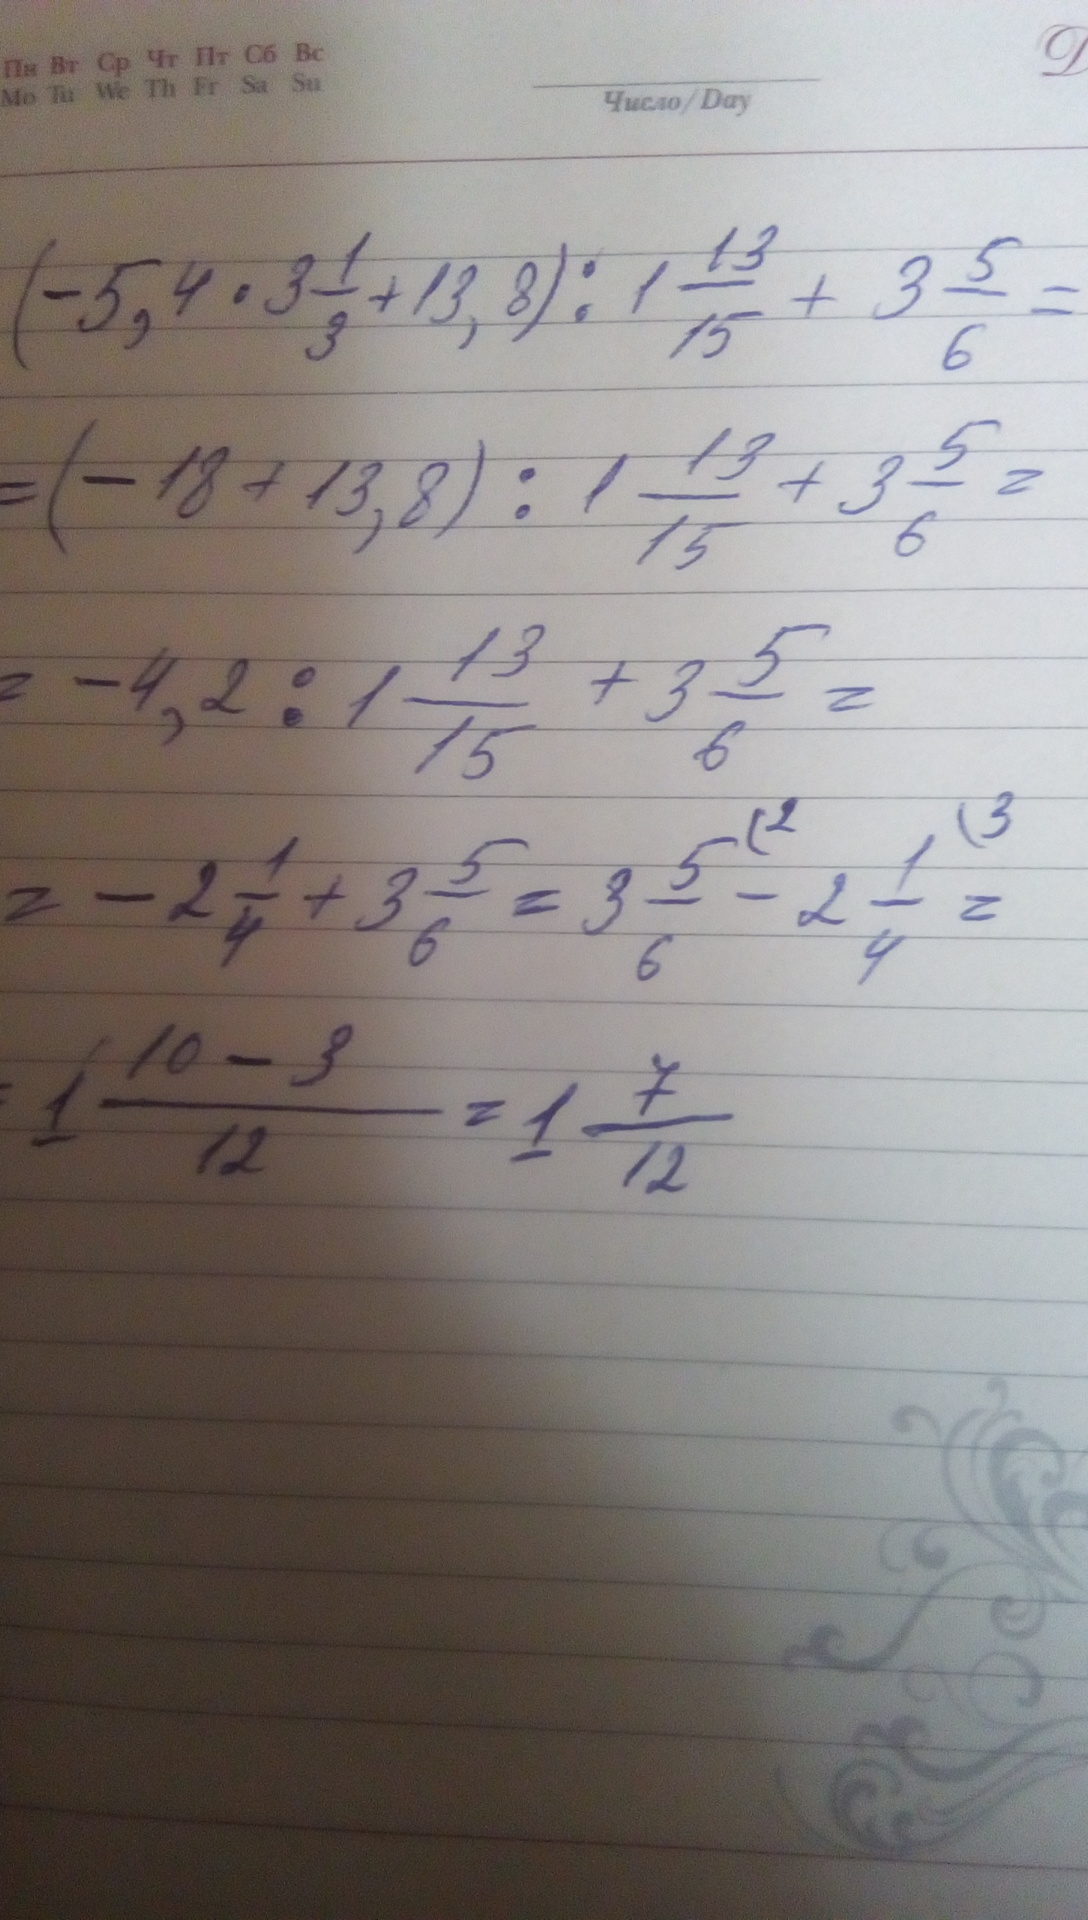 Пн Вт Ср Чт Пт Сб Вс
Mo Tu We Th Fr Sa Su
Число/Day
(-5,4 · 3 1/3 + 13,8) : 1 13/15 + 3 5/6 =
= (-18 + 13,8) : 1 13/15 + 3 5/6 =
= -4,2 : 1 13/15 + 3 5/6 =
= -2 1/4 + 3 5/6 = 3 5/6 (2 - 2 1/4 (3 =
= 1 (10 - 3)/12 = 1 7/12